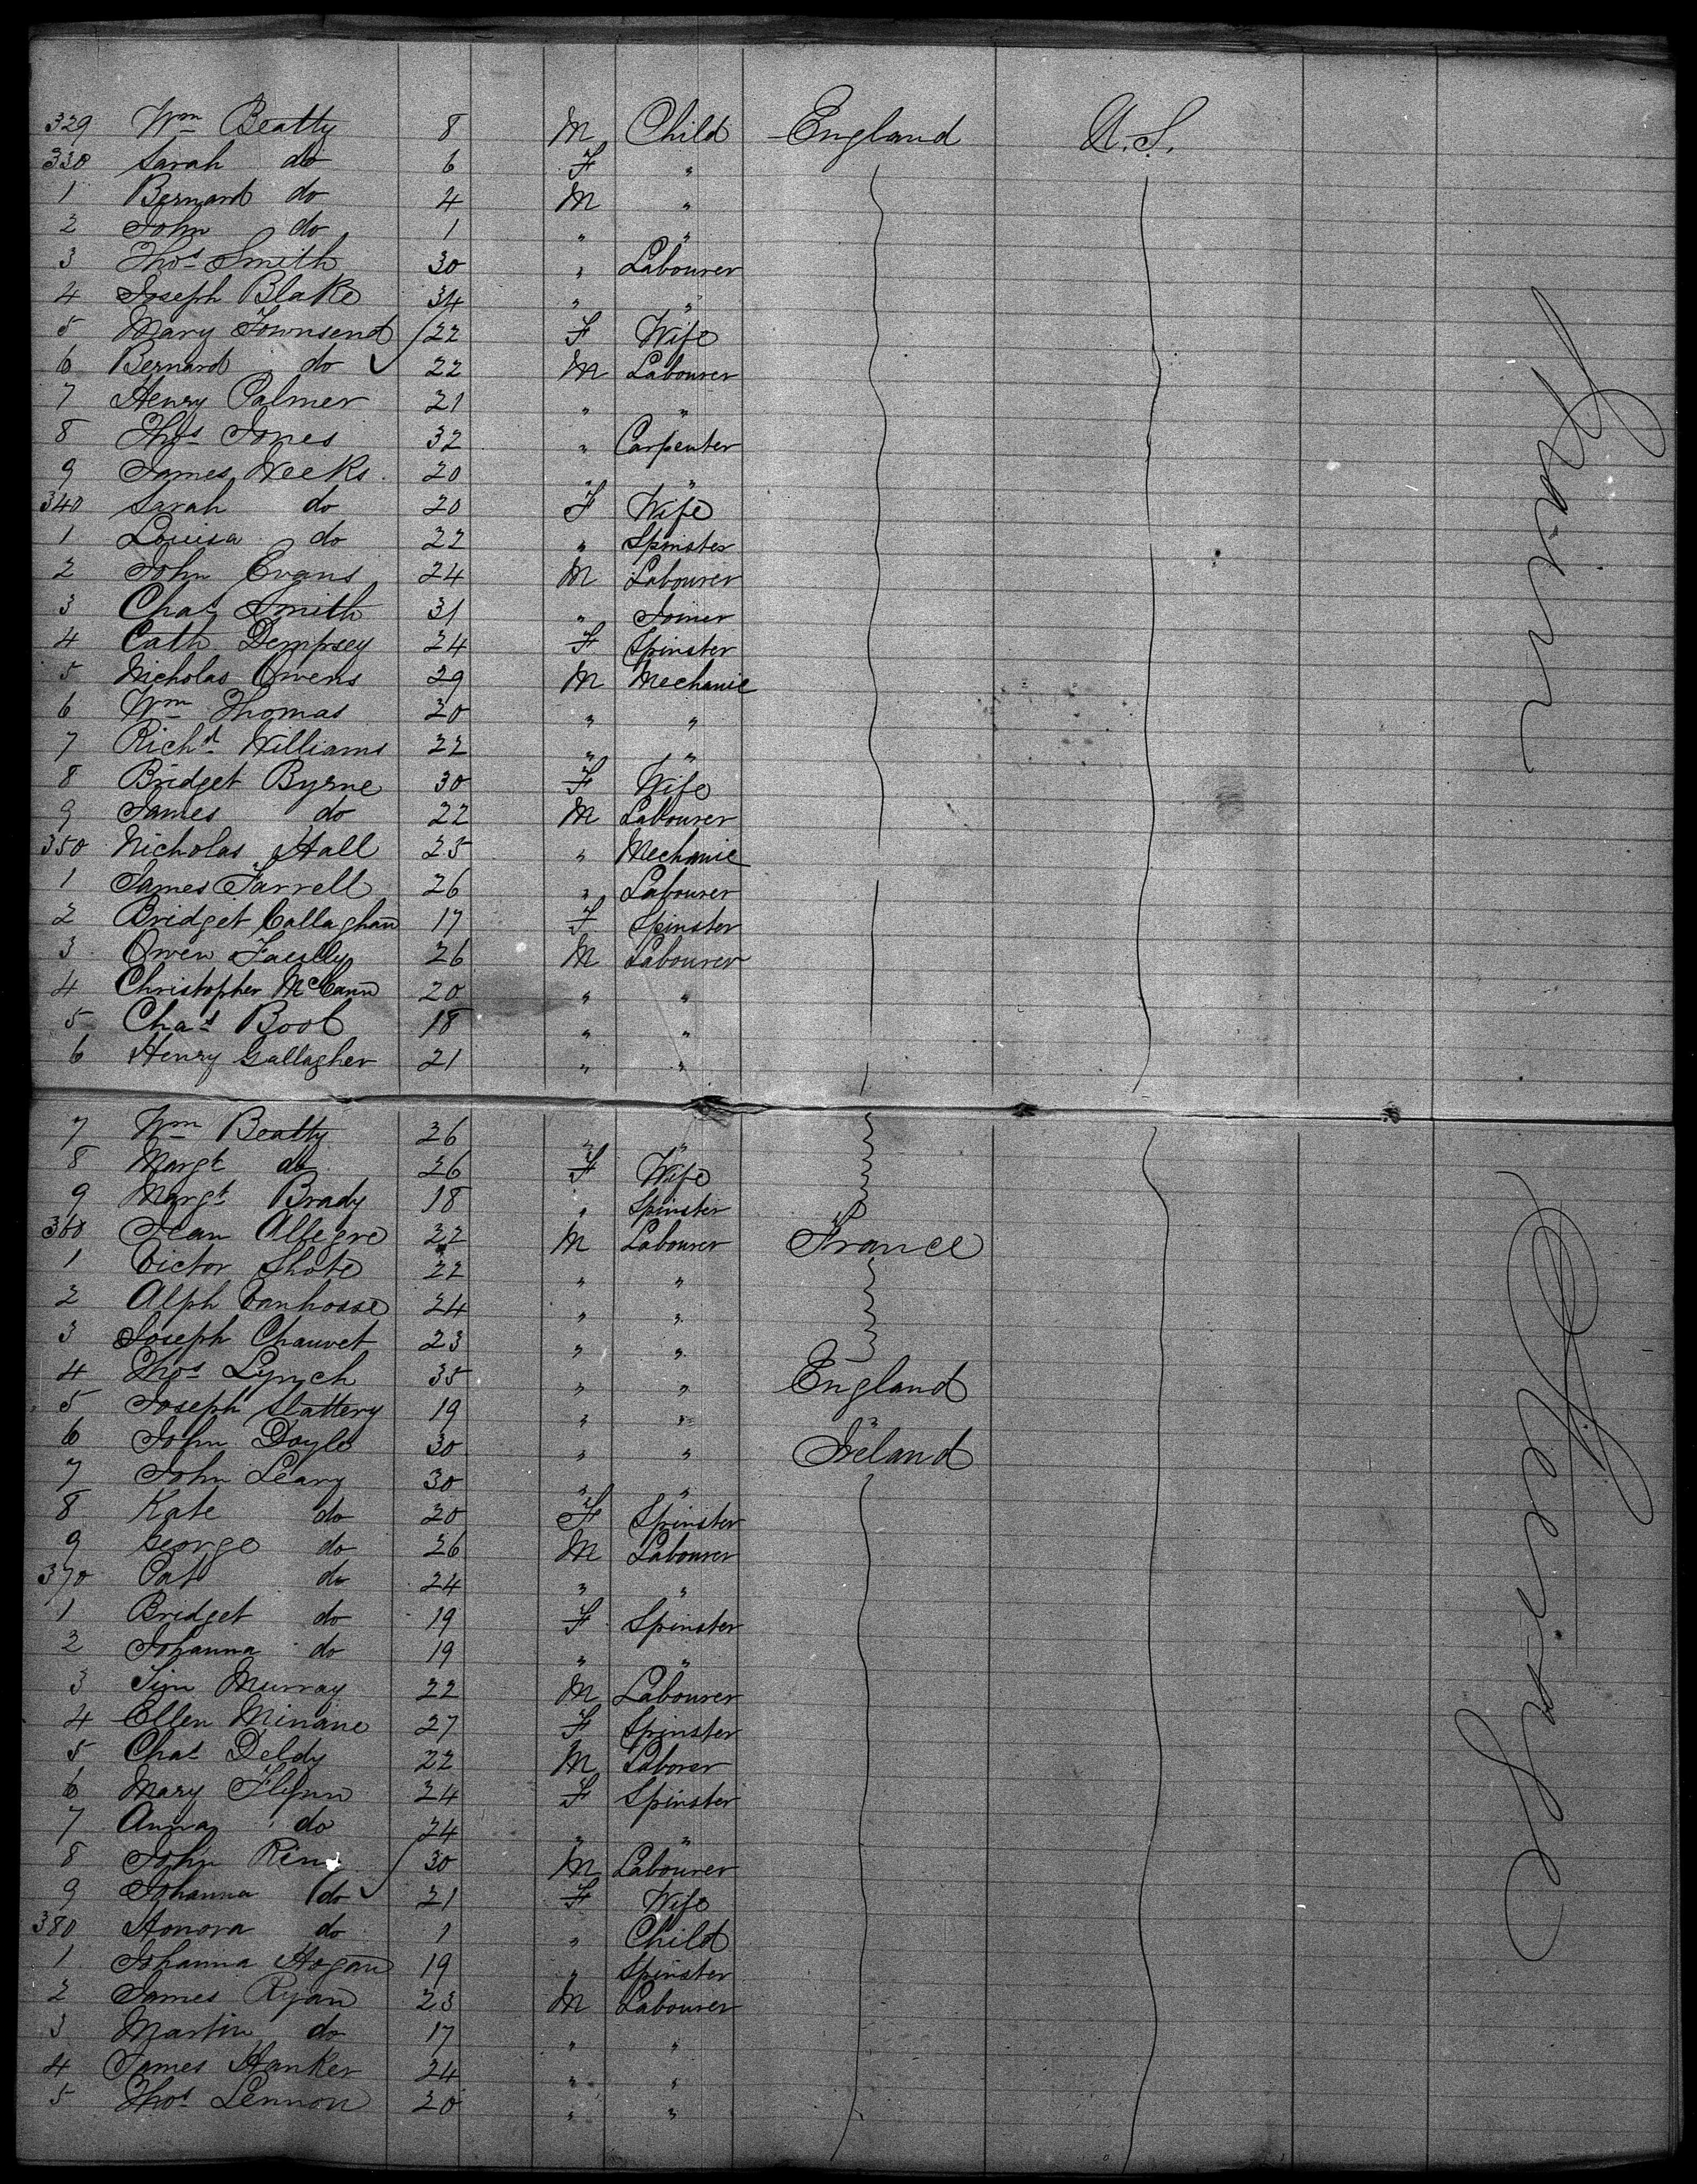 329 Wm Beatty 8 M Child England U.S.
330 Sarah do 6 F "
1 Bernard do 4 M "
2 John do 1 " "
3 Thos Smith 30 " Labourer
4 Joseph Blake 34 " "
5 Mary Townsend 22 F Wife
6 Bernard do 22 M Labourer
7 Henry Palmer 21 " "
8 Thos Jones 32 " Carpenter
9 James Weeks 20 " "
340 Sarah do 20 F Wife
1 Louisa do 22 " Spinster
2 John Evans 24 M Labourer
3 Chas Smith 31 " Joiner
4 Cath Dempsey 24 F Spinster
5 Nicholas Owens 29 M Mechanic
6 Wm Thomas 20 " "
7 Richd Williams 22 " "
8 Bridget Byrne 30 F Wife
9 James do 22 M Labourer
350 Nicholas Hall 25 " Mechanic
1 James Farrell 26 " Labourer
2 Bridget Callaghan 17 F Spinster
3 Owen 26 M Labourer
4 Christopher McCann 20 " "
5 Chas Bool 18 " "
6 Henry Gallagher 21 " "
7 Wm Beatty 26 " "
8 Margt do 26 F Wife
9 Margt Brady 18 " Spinster
360 Jean Allegre 22 M Labourer France
1 Victor Shote 22 " "
2 Alph Vanhosse 24 " "
3 Joseph Chauvet 23 " "
4 Thos Lynch 35 " " England
5 Joseph Slattery 19 " " "
6 John Doyle 30 " " Ireland
7 John Leary 30 " "
8 Kate do 20 F Spinster
9 George do 26 M Labourer
370 Pat do 24 " "
1 Bridget do 19 F Spinster
2 Johanna do 19 " "
3 Jim Murray 22 M Labourer
4 Ellen Minane 27 F Spinster
5 Chas Deldy 22 M Laborer
6 Mary Flynn 24 F Spinster
7 Anna do 24 " "
8 John 30 M Labourer
9 Johanna do 21 F Wife
380 Honora do 1 " Child
1 Johanna Hogan 19 " Spinster
2 James Ryan 23 M Labourer
3 Martin do 17 " "
4 James Hanker 24 " "
5 Thos Lennon 20 " "